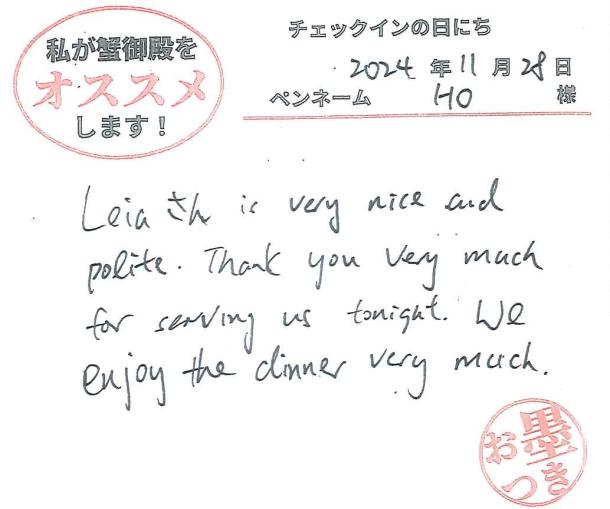 私が蟹御殿を
オススメ
します！
チェックインの日にち
2024 年 11 月 28 日
ペンネーム HO 様
Leia さん is very nice and
polite. Thank you very much
for serving us tonight. We
enjoy the dinner very much.
お墨
つき